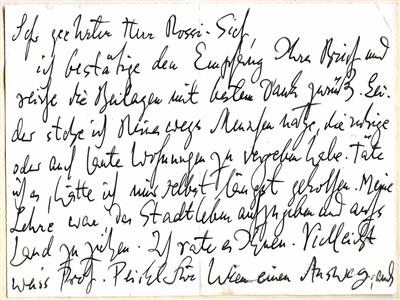 Sehr geehrter Herr Rossi-Sief,
ich bestätige den Empfang Ihres Briefs und
reiche die Beilagen mit bestem Dank zurück. Lei-
der stehe ich keineswegs Menschen nahe, die ruhige
oder auch laute Wohnungen zu vergeben habe. Täte
ich es, hätte ich mir selbst längst geholfen. Meine
Lehre war, das Stadtleben aufzugeben und aufs
Land zu ziehen. Ich rate es Ihnen. Vielleicht
weiss Prof. für Wien einen Ausweg, auch